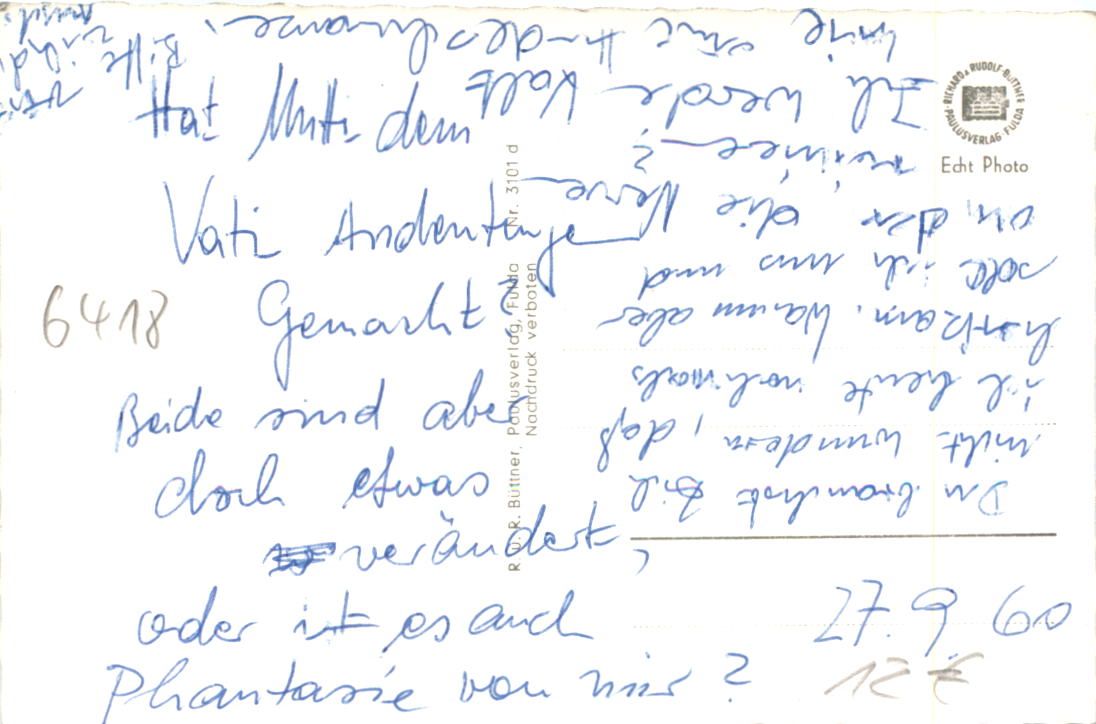 27.9.60
Du brauchst Dich
nicht wundern, daß
ich heute nochmals
herkam. Warum aber
soll ich uns und
die Nerven
ruinieren?
Ich werde kalt
wie eine Hundeschnauze.
Bitte
Hat Mutti dem
Vati Andeutunge
Gemacht?
Beide sind aber
doch etwas
verändert,
oder ist es auch
Phantasie von mir?
6418
12 €
RICHARD & RUDOLF BÜTTNER · PAULUSVERLAG FULDA
Echt Photo
R. u. R. Büttner, Paulusverlag, Fulda Nr. 3101 d
Nachdruck verboten